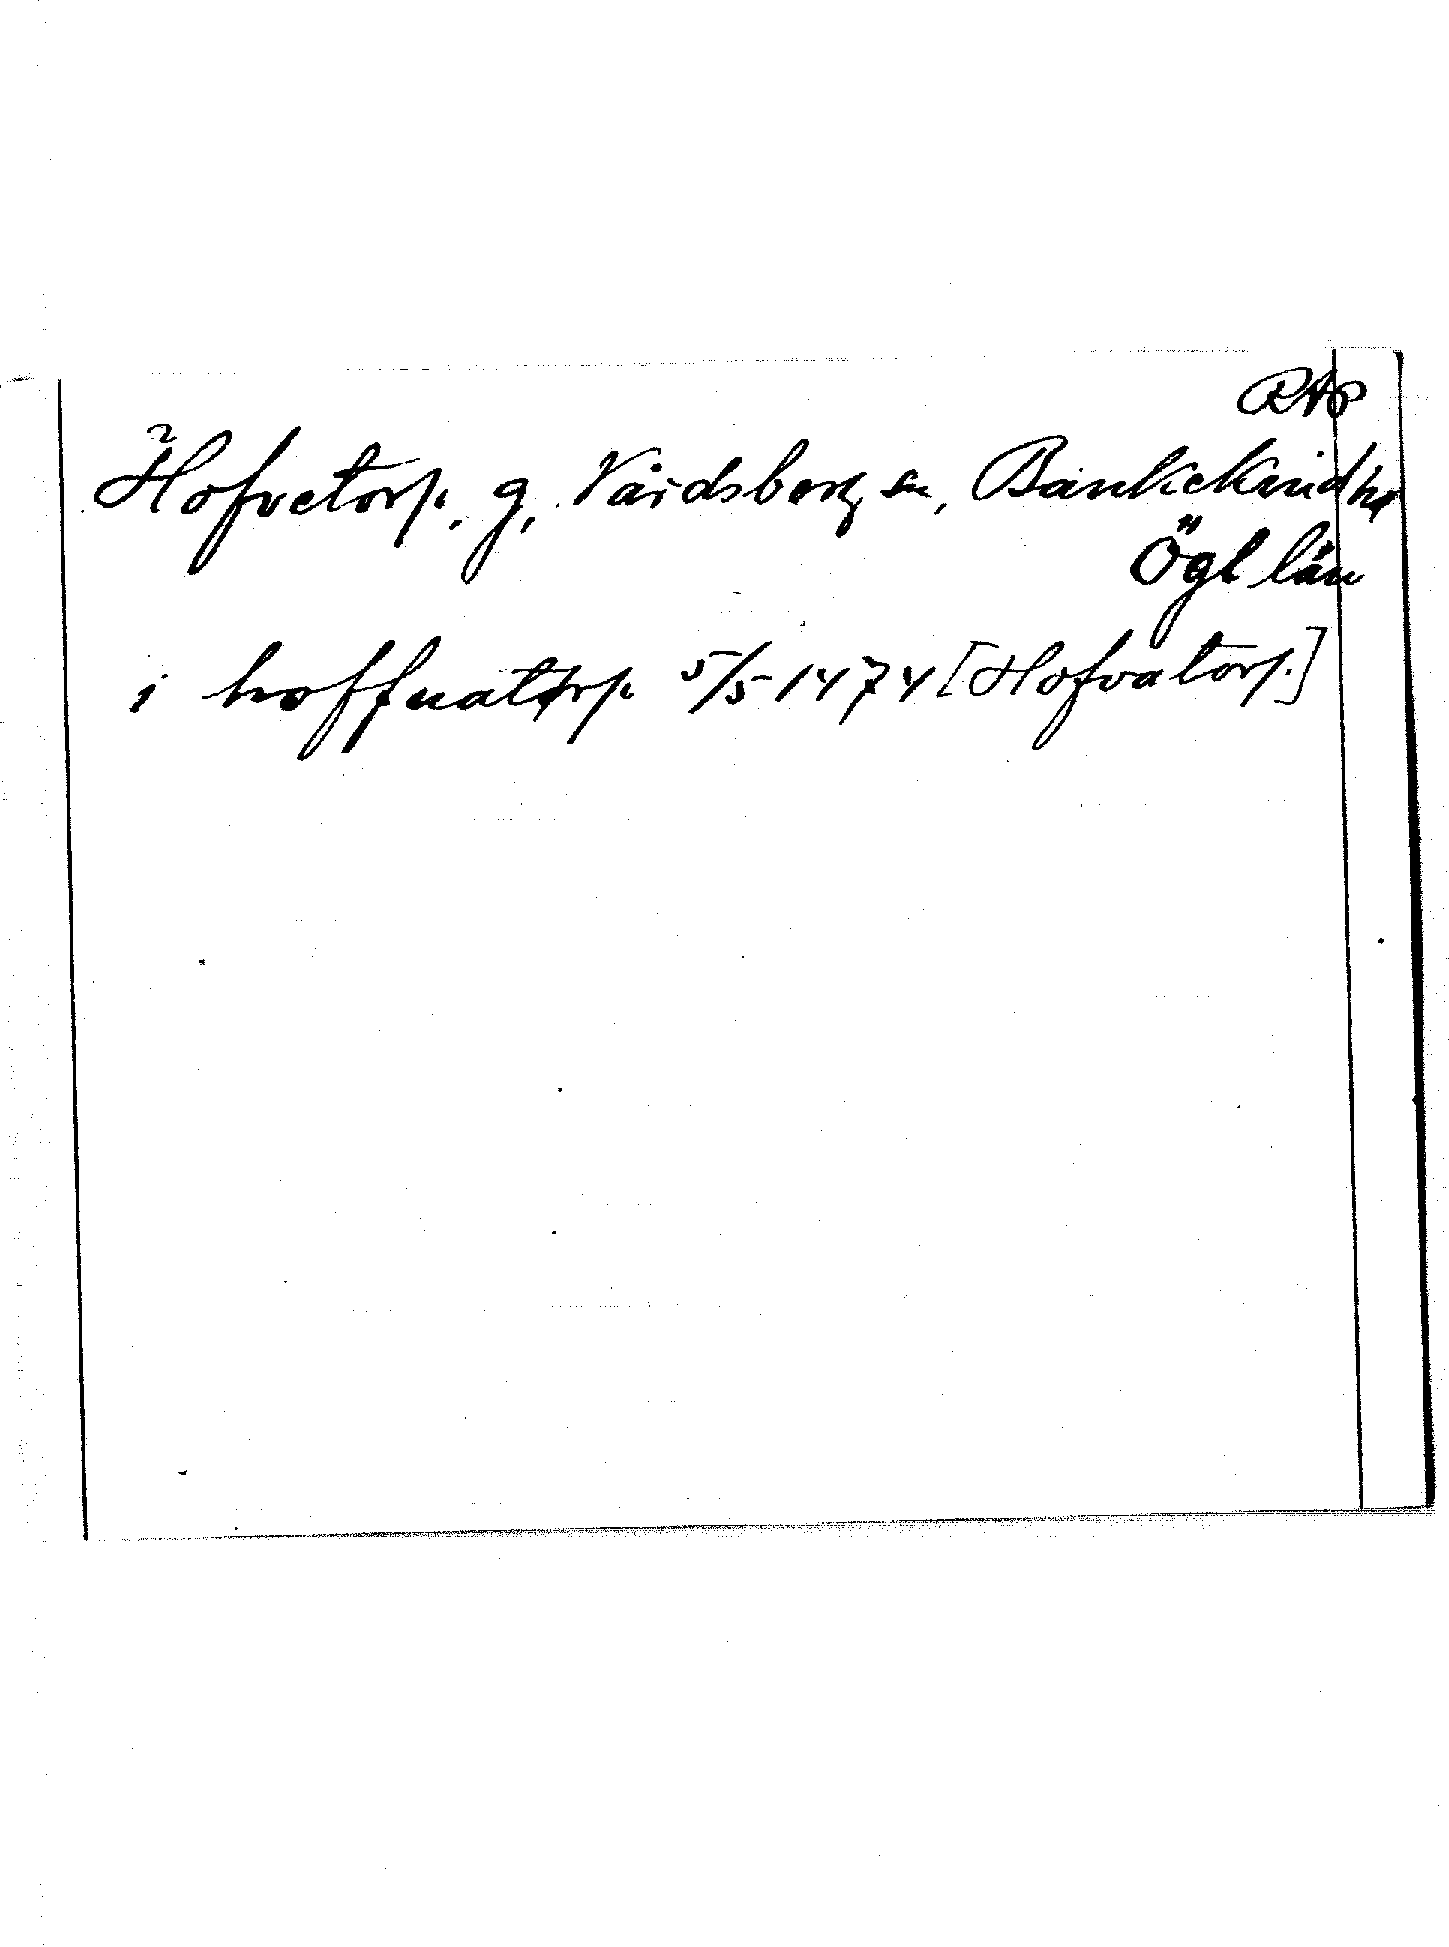 RAp
Hofvetorp, g, Vårdsberg sn, Bankekinds hd
Ögl län
i hoffuatorp 5/5 1474 [Hofvatorp.]